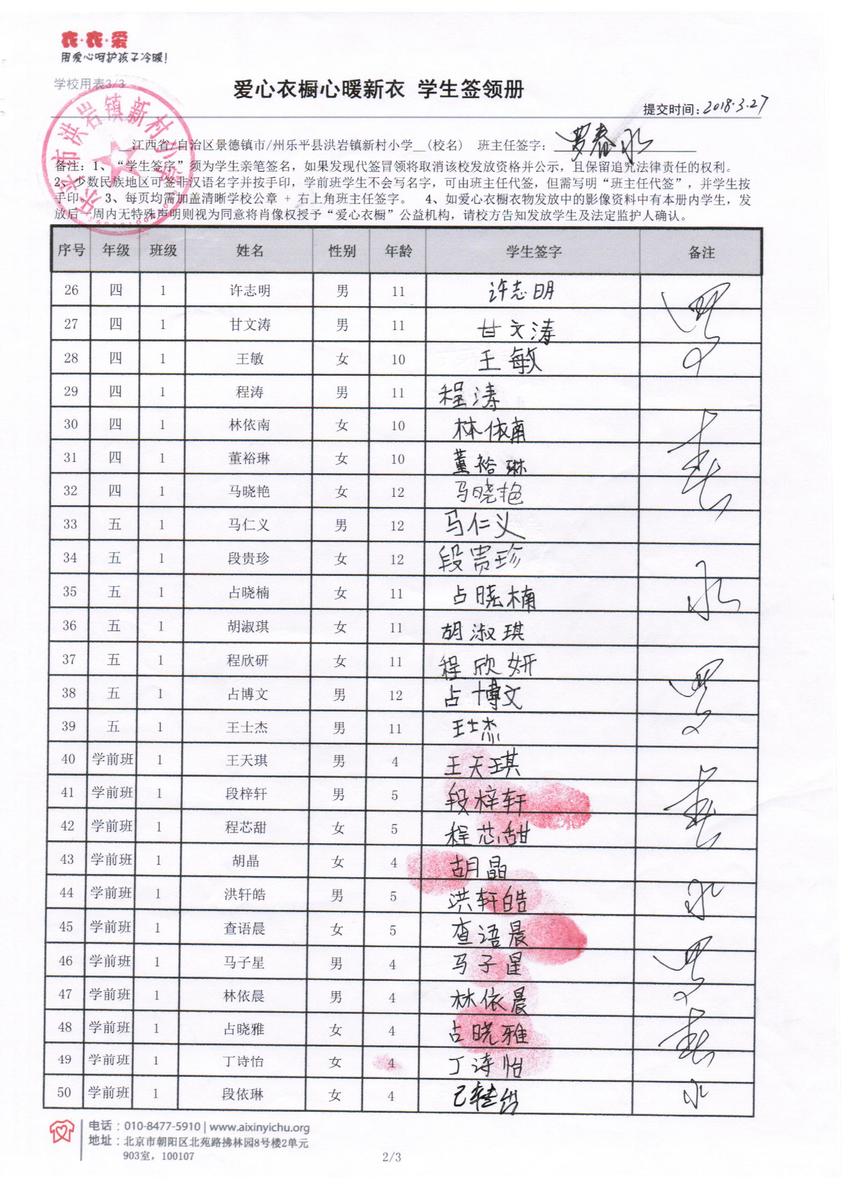 衣·衣·爱
用爱心呵护孩子冷暖!
学校用表3/3
爱心衣橱心暖新衣 学生签领册
提交时间: 2018.3.27
江西省/自治区景德镇市/州乐平县洪岩镇新村小学 (校名) 班主任签字: 罗春水
备注: 1、“学生签字”须为学生亲笔签名, 如果发现代签冒领将取消该校发放资格并公示, 且保留追究法律责任的权利。
2、少数民族地区可签非汉语名字并按手印, 学前班学生不会写名字, 可由班主任代签, 但需写明“班主任代签”, 并学生按
手印。 3、每页均需加盖清晰学校公章 + 右上角班主任签字。 4、如爱心衣橱衣物发放中的影像资料中有本册内学生, 发
放后一周内无特殊声明则视为同意将肖像权授予“爱心衣橱”公益机构, 请校方告知发放学生及法定监护人确认。
序号 年级 班级 姓名 性别 年龄 学生签字 备注
26 四 1 许志明 男 11 许志明 罗
27 四 1 甘文涛 男 11 甘文涛
28 四 1 王敏 女 10 王敏
29 四 1 程涛 男 11 程涛
30 四 1 林依南 女 10 林依南 春
31 四 1 董裕琳 女 10 董裕琳
32 四 1 马晓艳 女 12 马晓艳
33 五 1 马仁义 男 12 马仁义
34 五 1 段贵珍 女 12 段贵珍
35 五 1 占晓楠 女 11 占晓楠 水
36 五 1 胡淑琪 女 11 胡淑琪
37 五 1 程欣研 女 11 程欣妍
38 五 1 占博文 男 12 占博文 罗
39 五 1 王士杰 男 11 王士杰
40 学前班 1 王天琪 男 4 王天琪
41 学前班 1 段梓轩 男 5 段梓轩 春
42 学前班 1 程芯甜 女 5 程芯甜
43 学前班 1 胡晶 女 4 胡晶
44 学前班 1 洪轩皓 男 5 洪轩皓 水
45 学前班 1 查语晨 女 5 查语晨
46 学前班 1 马子星 男 4 马子星 罗
47 学前班 1 林依晨 男 4 林依晨
48 学前班 1 占晓雅 女 4 占晓雅 春
49 学前班 1 丁诗怡 女 4 丁诗怡
50 学前班 1 段依琳 女 4 水
电话: 010-8477-5910 | www.aixinyichu.org
地址: 北京市朝阳区北苑路拂林园8号楼2单元
903室, 100107
2/3